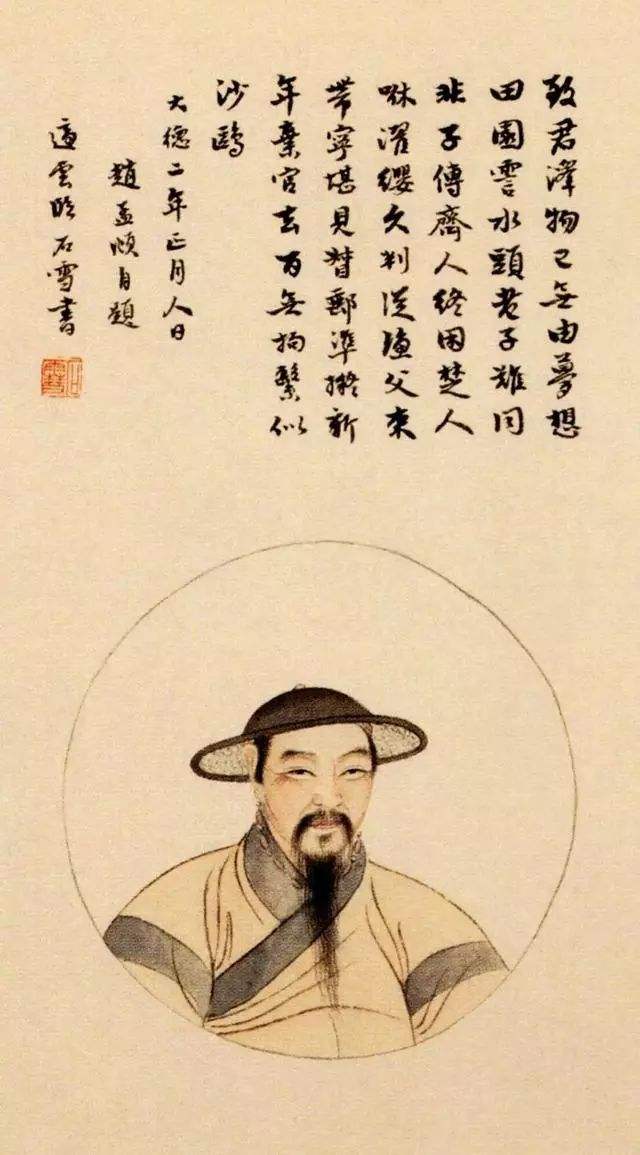 致君澤物已無由夢想
田園雲水頭老子難同
非子傳齊人終困楚人
咻濯纓久判從漁父束
帶寧堪見督郵準擬新
年棄官去百無拘繫似
沙鷗
大德二年正月人日
趙孟頫自題
適雲臨石雪書